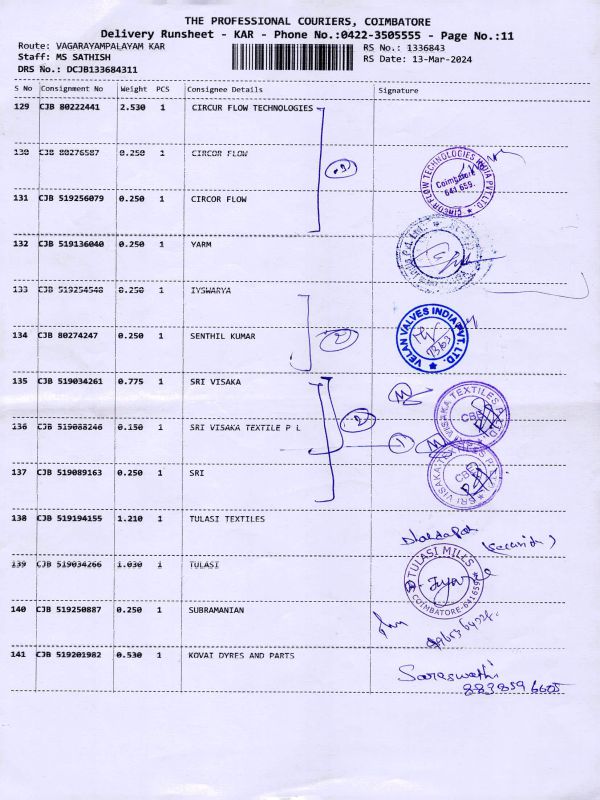 THE PROFESSIONAL COURIERS, COIMBATORE
Delivery Runsheet - KAR - Phone No.:0422-3505555 - Page No.:11
Route: VAGARAYAMPALAYAM KAR
Staff: MS SATHISH
DRS No.: DCJB133684311
RS No.: 1336843
RS Date: 13-Mar-2024
S No Consignment No Weight PCS Consignee Details Signature
129 CJB 80222441 2.530 1 CIRCUR FLOW TECHNOLOGIES
130 CJB 80276587 0.250 1 CIRCOR FLOW
CIRCOR FLOW TECHNOLOGIES INDIA PVT. LTD.
Coimbatore
641 659.
131 CJB 519256079 0.250 1 CIRCOR FLOW
132 CJB 519136040 0.250 1 YARM
133 CJB 519254548 0.250 1 IYSWARYA
134 CJB 80274247 0.250 1 SENTHIL KUMAR
2
VELAN VALVES INDIA PVT. LTD.
135 CJB 519034261 0.775 1 SRI VISAKA
136 CJB 519088246 0.150 1 SRI VISAKA TEXTILE P L
2
1
SRI VISAKA TEXTILES P LTD.
CBE
137 CJB 519089163 0.250 1 SRI
SRI VISAKA TEXTILES P LTD.
CBE
138 CJB 519194155 1.210 1 TULASI TEXTILES
(security)
139 CJB 519034266 1.030 1 TULASI
TULASI MILLS
COIMBATORE-641659
140 CJB 519250887 0.250 1 SUBRAMANIAN
141 CJB 519201982 0.530 1 KOVAI DYRES AND PARTS
Saraswathi